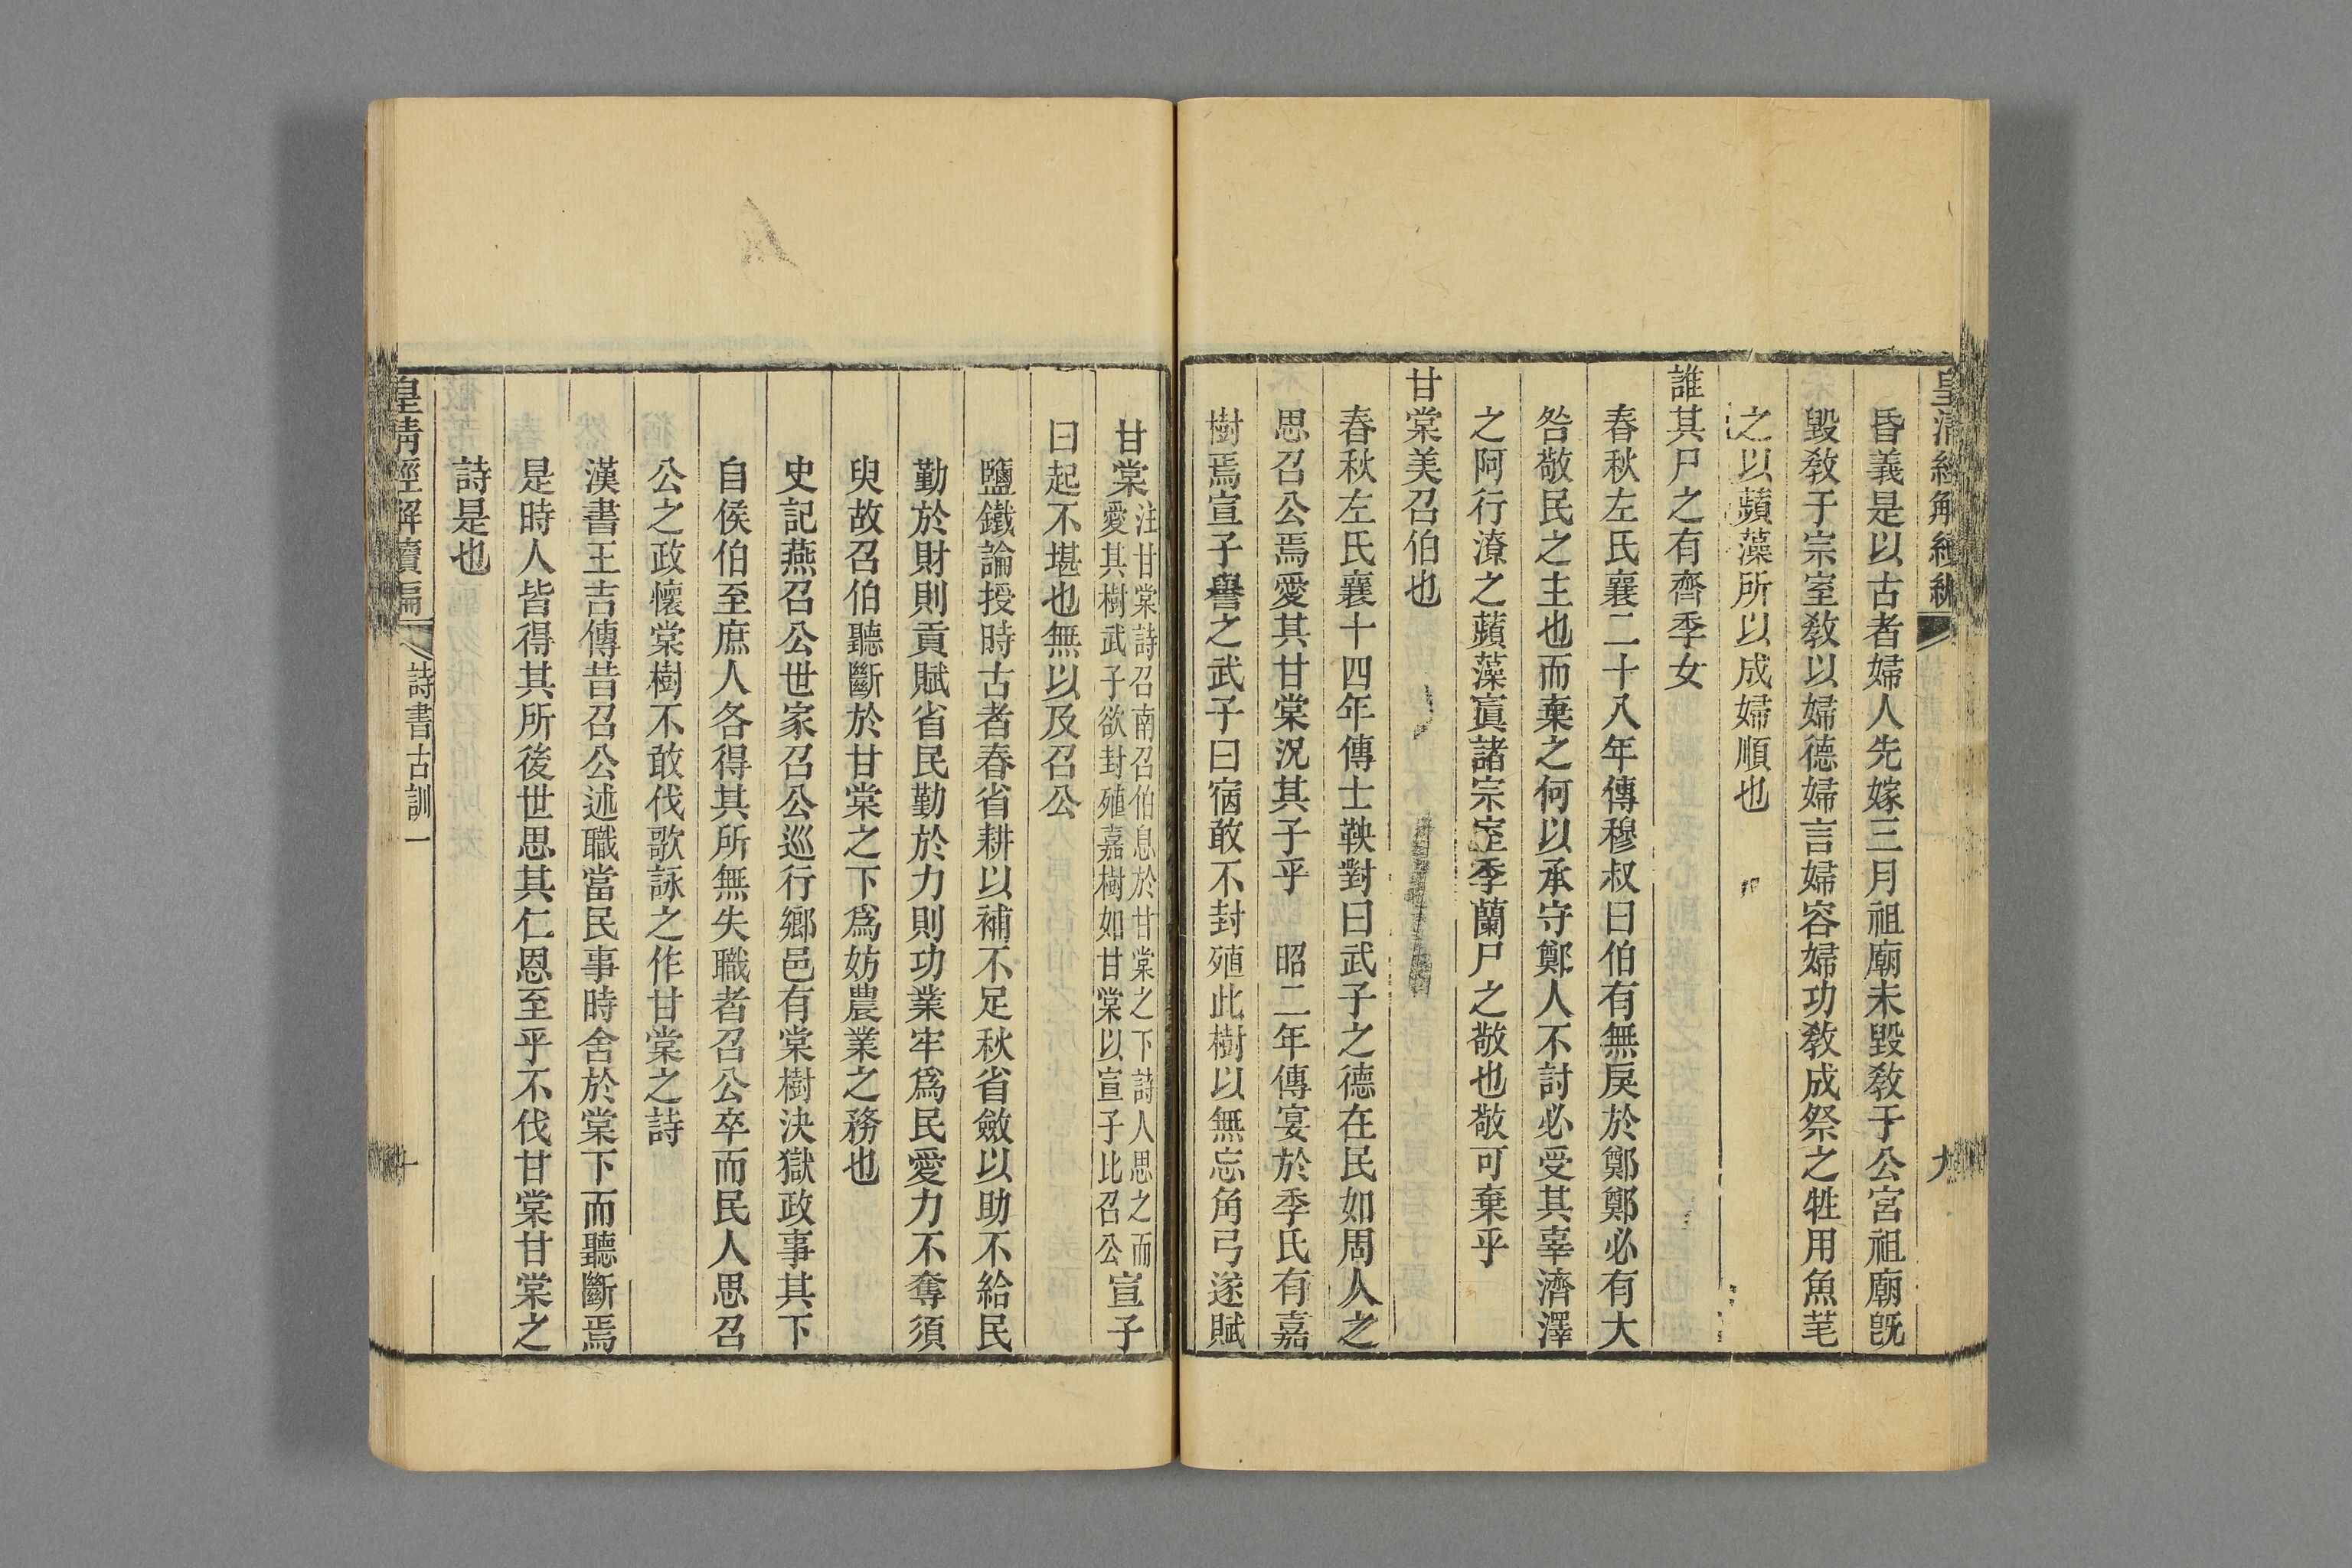 皇清經解續編
九
昏義是以古者婦人先嫁三月祖廟未毀敎于公宮祖廟旣
毀敎于宗室敎以婦德婦言婦容婦功敎成祭之牲用魚芼
之以蘋藻所以成婦順也
誰其尸之有齊季女
春秋左氏襄二十八年傳穆叔曰伯有無戾於鄭鄭必有大
咎敬民之主也而棄之何以承守鄭人不討必受其辜濟澤
之阿行潦之蘋藻寘諸宗室季蘭尸之敬也敬可棄乎
甘棠美召伯也
春秋左氏襄十四年傳士鞅對曰武子之德在民如周人之
思召公焉愛其甘棠況其子乎　昭二年傳宴於季氏有嘉
樹焉宣子譽之武子曰宿敢不封殖此樹以無忘角弓遂賦
甘棠注甘棠詩召南召伯息於甘棠之下詩人思之而愛其樹武子欲封殖嘉樹如甘棠以宣子比召公宣子
曰起不堪也無以及召公
鹽鐵論授時古者春省耕以補不足秋省斂以助不給民
勤於財則貢賦省民勤於力則功業牢爲民愛力不奪須
臾故召伯聽斷於甘棠之下爲妨農業之務也
史記燕召公世家召公巡行鄉邑有棠樹決獄政事其下
自侯伯至庶人各得其所無失職者召公卒而民人思召
公之政懷棠樹不敢伐歌詠之作甘棠之詩
漢書王吉傳昔召公述職當民事時舍於棠下而聽斷焉
是時人皆得其所後世思其仁恩至乎不伐甘棠甘棠之
詩是也
皇清經解續編
詩書古訓一
十